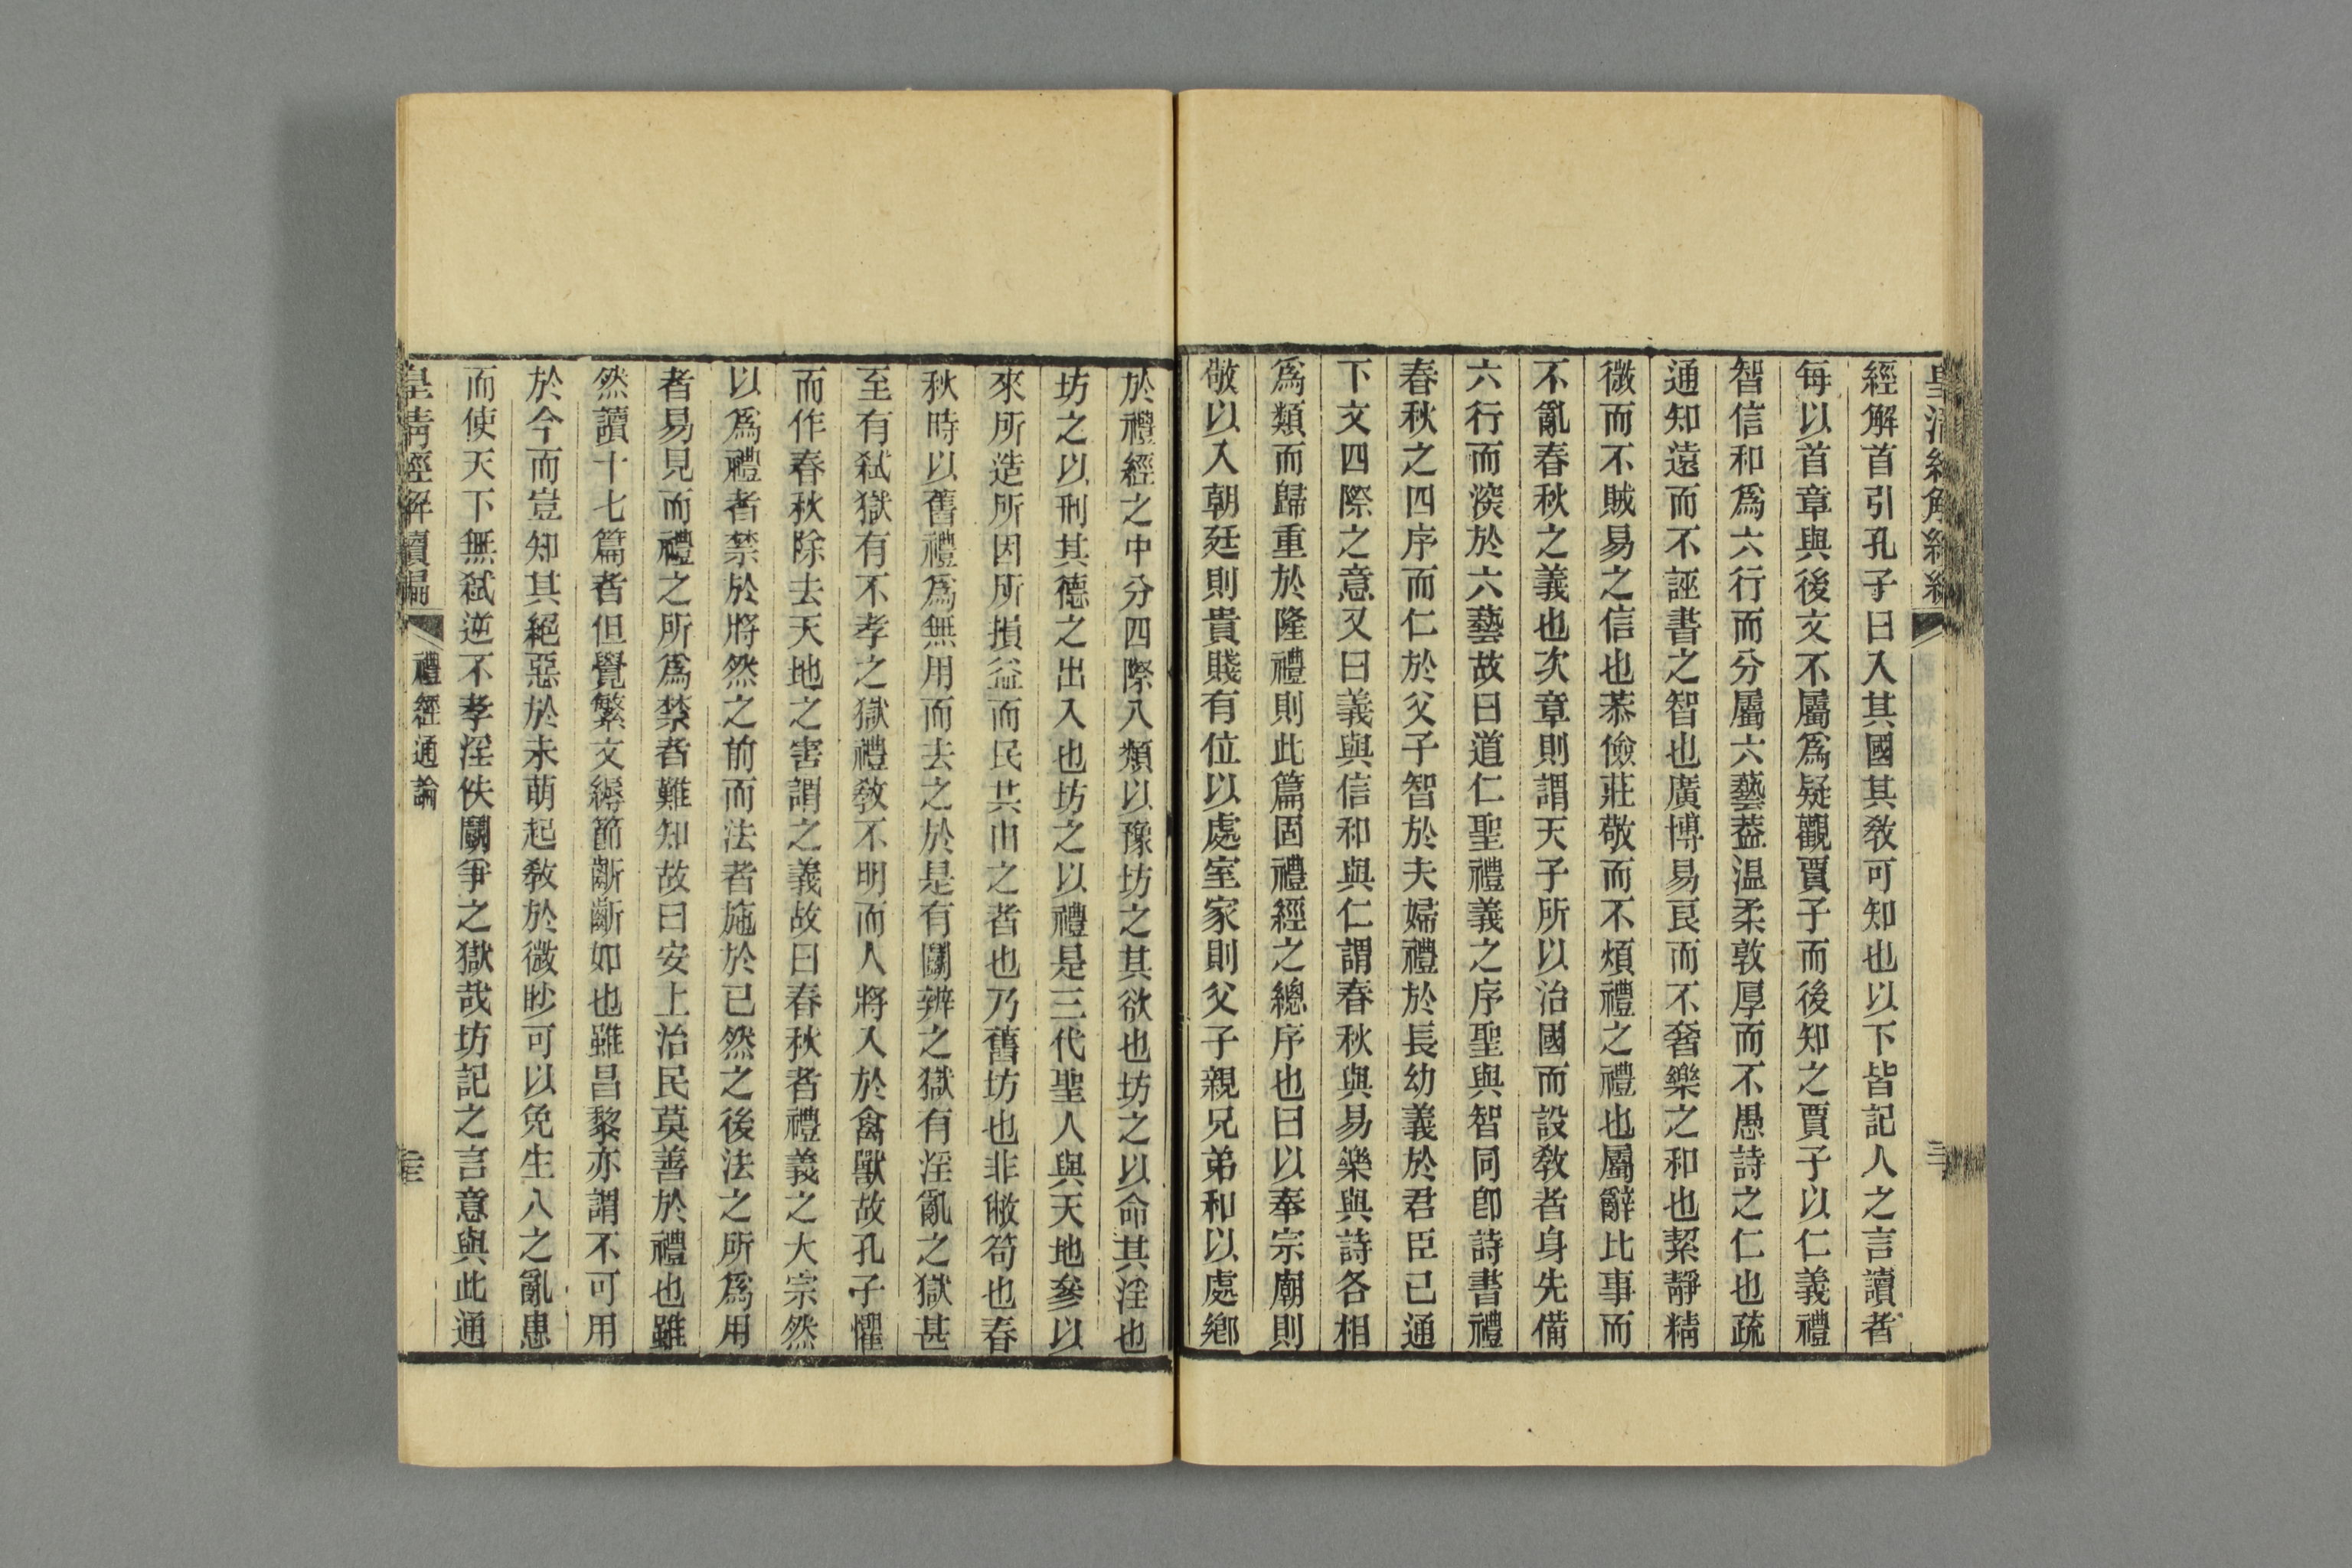 皇清經解續編
經解首引孔子曰入其國其敎可知也以下皆記人之言讀者
每以首章與後文不屬爲疑觀賈子而後知之賈子以仁義禮
智信和爲六行而分屬六藝葢温柔敦厚而不愚詩之仁也疏
通知遠而不誣書之智也廣博易良而不奢樂之和也絜靜精
微而不賊易之信也恭儉莊敬而不煩禮之禮也屬辭比事而
不亂春秋之義也次章則謂天子所以治國而設敎者身先備
六行而深於六藝故曰道仁聖禮義之序聖與智同卽詩書禮
春秋之四序而仁於父子智於夫婦禮於長幼義於君臣已通
下文四際之意又曰義與信和與仁謂春秋與易樂與詩各相
爲類而歸重於隆禮則此篇固禮經之總序也曰以奉宗廟則
敬以入朝廷則貴賤有位以處室家則父子親兄弟和以處鄉
於禮經之中分四際八類以豫坊之其欲也坊之以命其淫也
坊之以刑其德之出入也坊之以禮是三代聖人與天地參以
來所造所因所損益而民共由之者也乃舊坊也非敝笱也春
秋時以舊禮爲無用而去之於是有鬭辨之獄有淫亂之獄甚
至有弑獄有不孝之獄禮敎不明而人將入於禽獸故孔子懼
而作春秋除去天地之害謂之義故曰春秋者禮義之大宗然
以爲禮者禁於將然之前而法者施於已然之後法之所爲用
者易見而禮之所爲禁者難知故曰安上治民莫善於禮也雖
然讀十七篇者但覺繁文縟節齗齗如也雖昌黎亦謂不可用
於今而豈知其絕惡於未萌起敎於微眇可以免生人之亂患
而使天下無弑逆不孝淫佚鬭爭之獄哉坊記之言意與此通
皇清經解續編 禮經通論